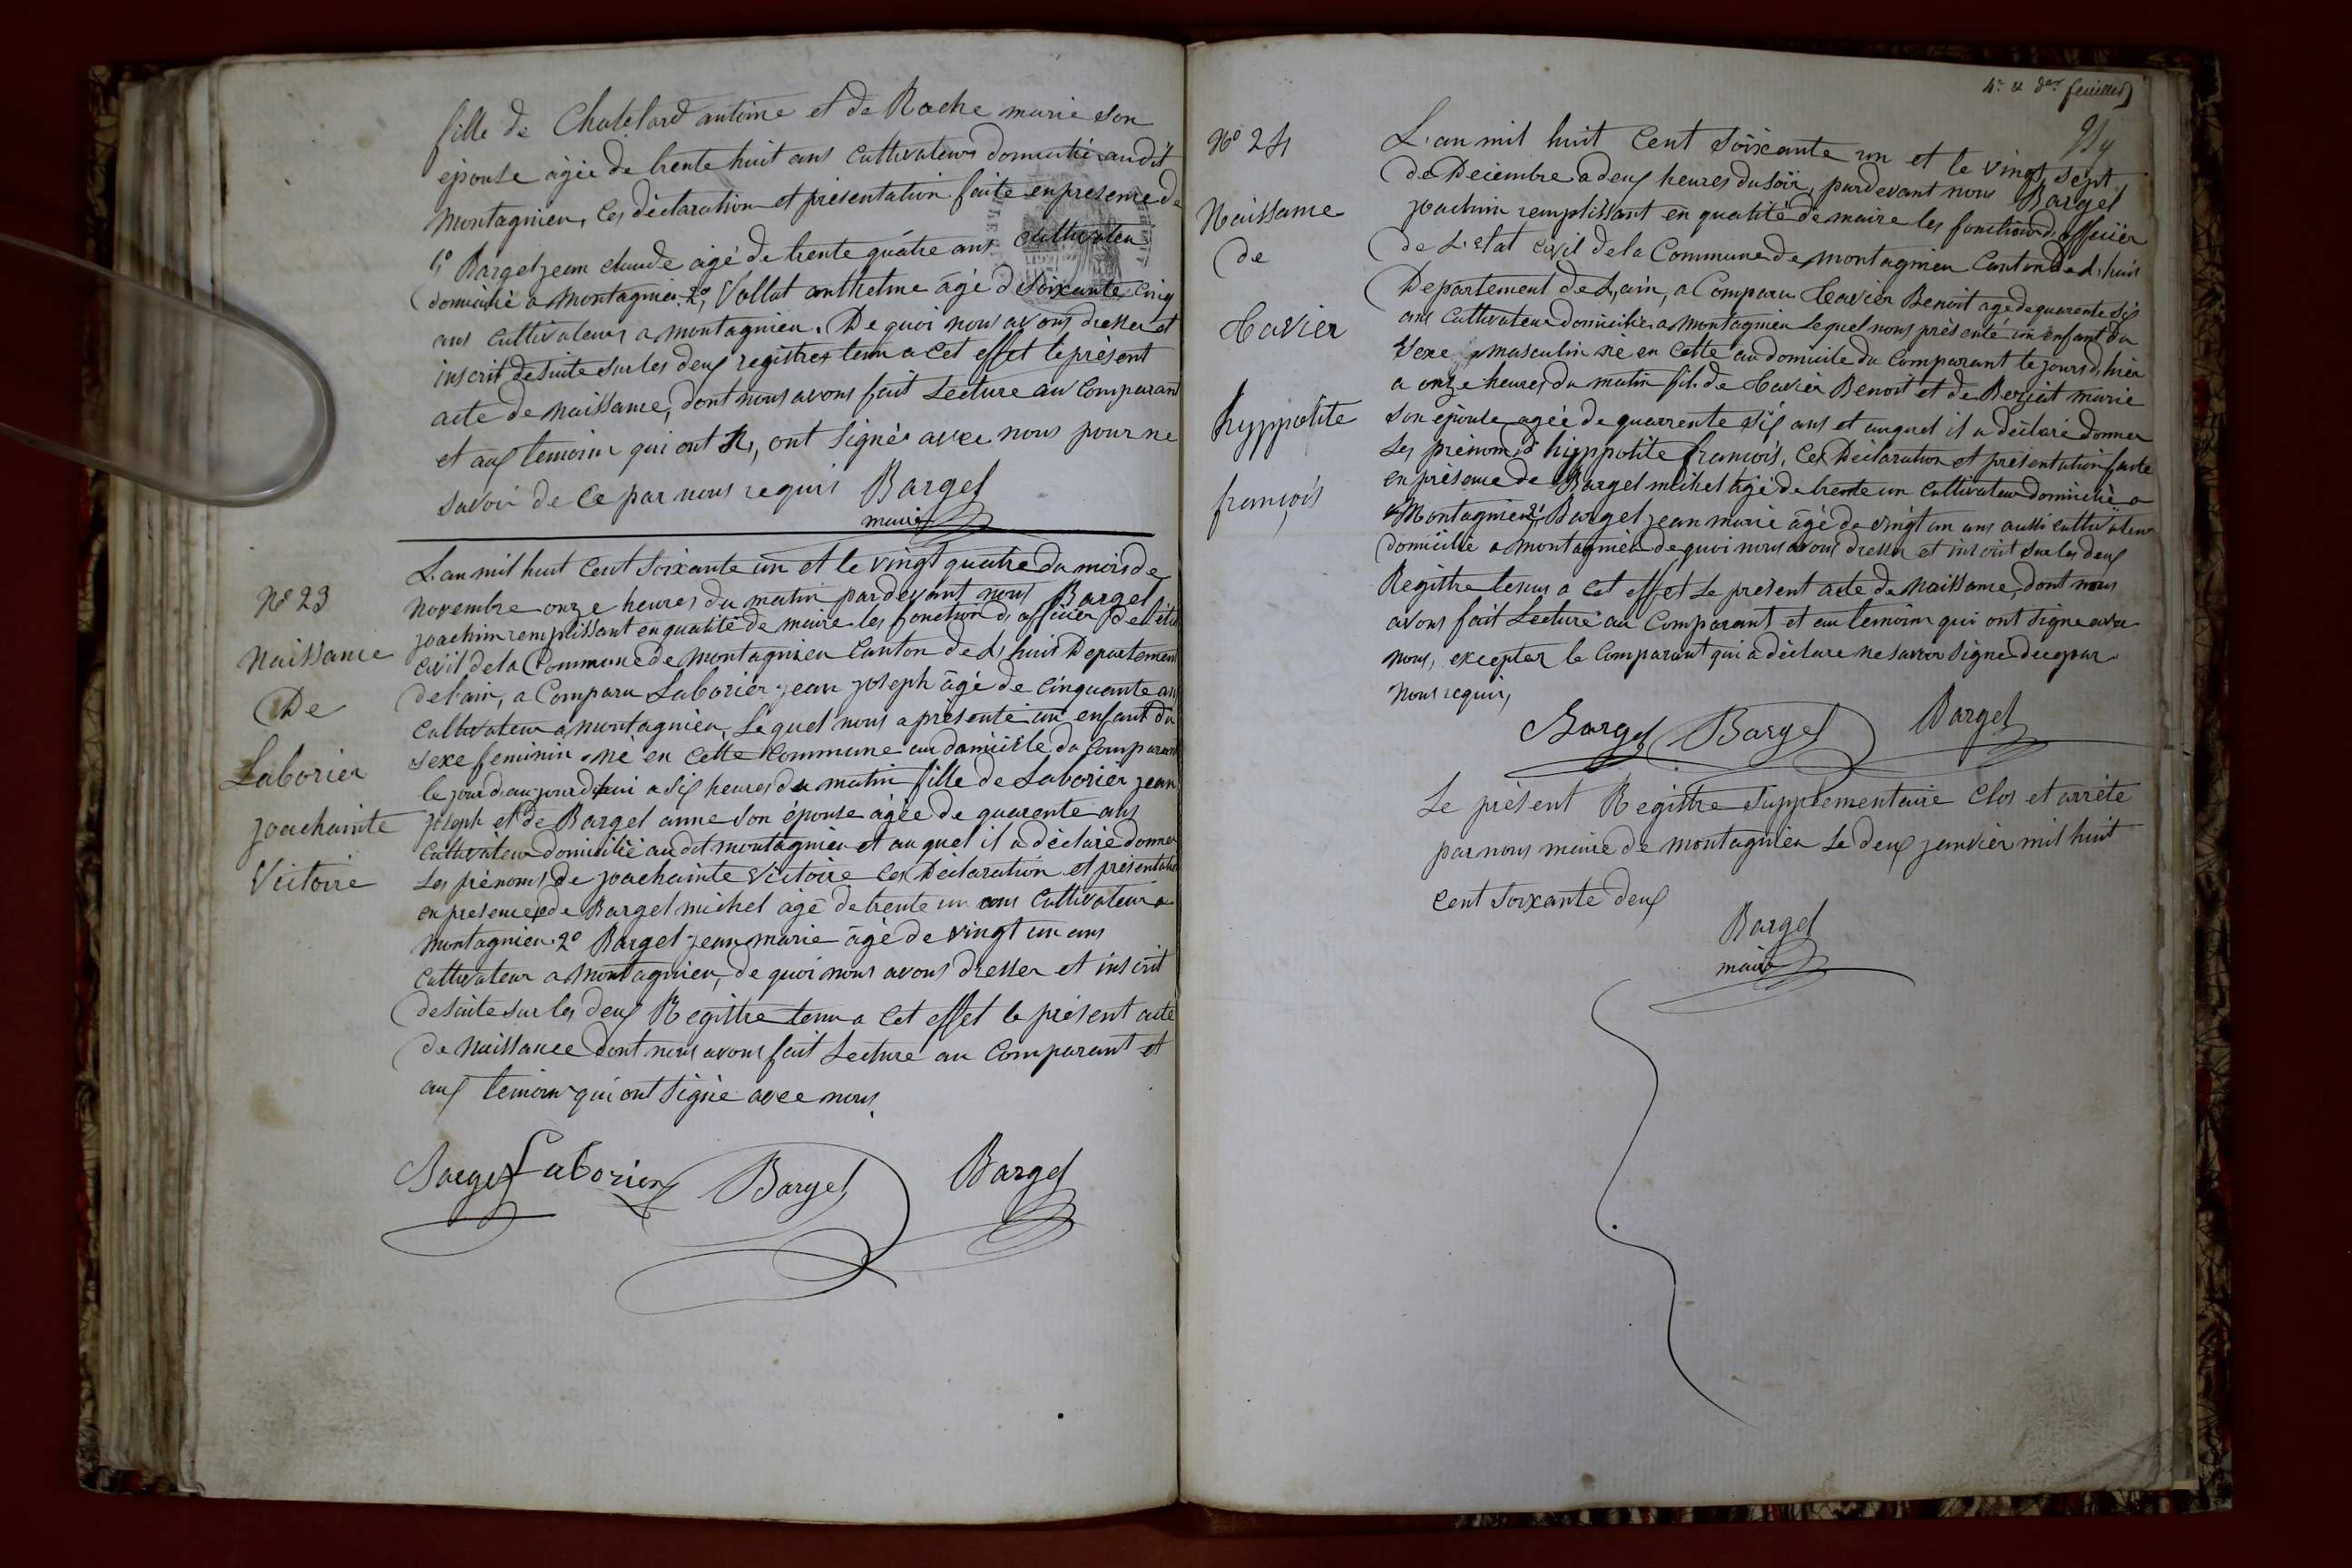 fille de Chatelard antoine et de Roche marie son
épouse âgée de trente huit ans Cultivateurs domicilié audit
Montagnieu, Ces déclaration et présentation faite en presence de
1° Bargel jean claude âgé de trente quatre ans Cultivateu
domicilié a Montagnieu, 2° Vallat anthelme âgé d Soixante Cinq
ans Cultivateurs a montagnieu. De quoi nous avons dresser et
inscrit desuite sur les deux registres tenu a Cet effet le présent
acte de naissance, dont nous avons fait Lecture au Comparant
et aux temoins qui ont , ont Signés avec nous pour ne
savoir de Ce par nous requis Bargel
maire
N° 23
Naissance
De
Laborier
joachainte
Victoire
L'an mil huit Cent Soixante un et le vingt quatre du mois de
novembre onze heures du matin pardevant nous Bargel
joachim remplissant en qualité de maire les fonction d, officier de l'état
Civil de la Commune de Montagnieu Canton de L, huis Departement
de lain, a Comparu Laborier jean joseph âgé de Cinquante ans
Cultivateur a montagnieu, Lequel nous a présenté un enfant du
Sexe feminin né en Cette Commune au domicile du Comparant
le jour daujourdhui a Six heures du matin fille de Laborier jean
joseph et de Bargel anne Son épouse âgée de quarente ans
Cultivateur domicilié audit montagnieu et auquel il a déclaré donner
Les prénoms de joachainte Victoire Ces Déclaration et présentation
en presence de Bargel michel âgé de trente un ans Cultivateur a
Montagnieu 2° Bargel jean marie âgé de vingt un ans
Cultivateur a Montagnieu, de quoi nous avons dresser et inscrit
desuite sur les deux Registre tenu a Cet effet le présent acte
de Naissance dont nous avons fait Lecture au Comparant et
aux temoins qui ont Signé avec nous.
Bargel Laborier Bargel Bargel
4e & der feuillet
N° 24
Naissance
de
Xavier
hyppolite
françois
L'an mil huit Cent Soixante un et le vingt Sept
de Decembre a deux heures du soir, pardevant nous Bargel
joachim remplissant en qualité de maire les fonctions d, officier
de L'etat Civil de la Commune de Montagnieu Canton de L, huis
Departement de L, ain, a Comparu Xavier Benoit age de quarente Six
ans Cultivateur domicilié a Montagnieu Lequel nous présenté un enfant du
Sexe masculin né en Cette au domicile du Comparant le jours d, hier
a onze heures du matin fils de Xavier Benoit et de Berjat marie
Son épouse agée de quarrente Six ans et auquel il a déclaré donner
Les prénoms d' hyppolite françois, Ces Déclaration et présentation faite
en présence de Bargel michel âgé de trente un Cultivateur domicilié a
Montagnieu 2° Bargel jean marie âgé de vingt un ans aussi Cultivateur
domicilié a montagnieu de quoi nous avons dresser et inscrit Sur les deux
Registre tenus a Cet effet Le présent acte de Naissance, dont nous
avons fait Lecture au Comparant et au temoins qui ont Signe avec
nous, excepter le Comparant qui a déclare ne savoir Signé de ce par
Nous requis,
Bargel Bargel Bargel
Le présent Registre Supplementaire Clos et arrête
par nous maire de montagnieu Le deux janvier mil huit
Cent Soixante deux
Bargel
maire